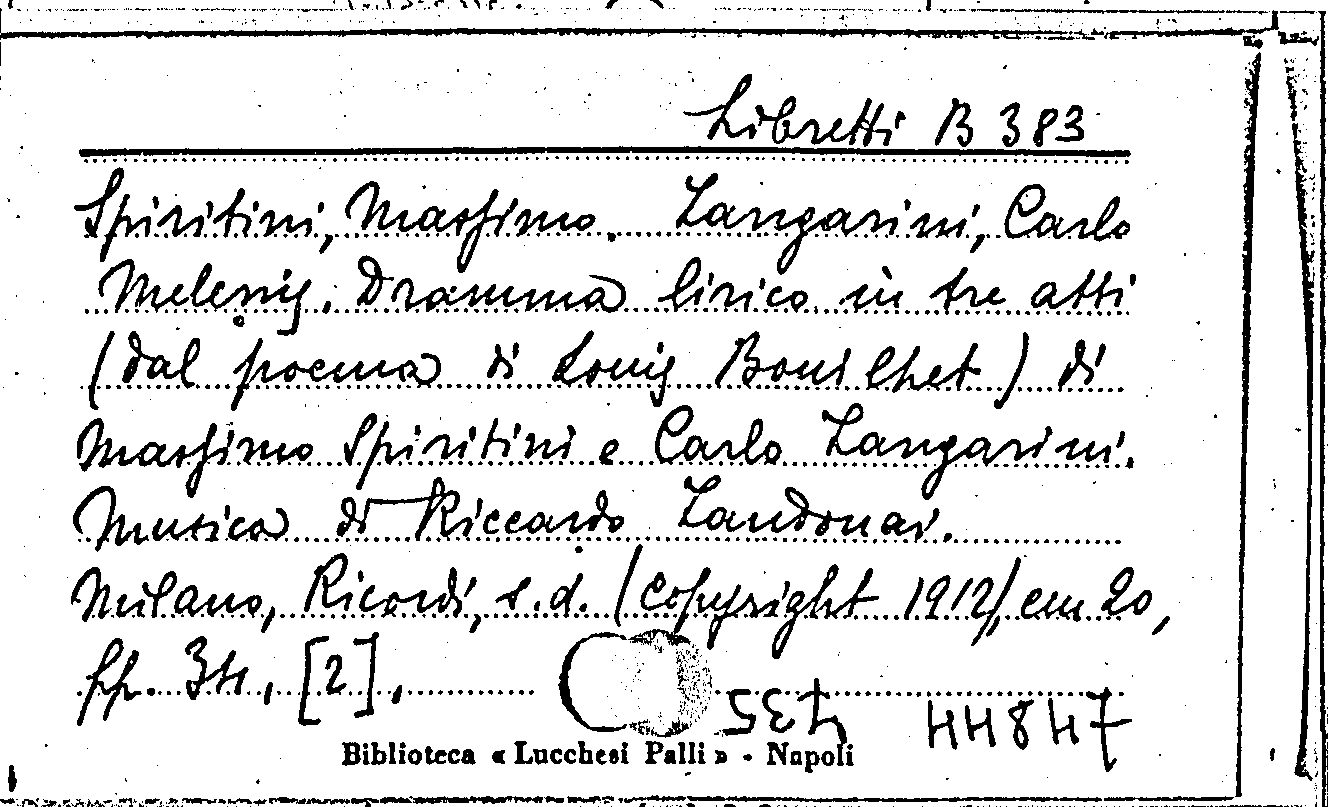 Libretti B 383
Spiritini, Massimo. Zangarini, Carlo
Melenis. Dramma lirico in tre atti
(dal poema di Louis Bouilhet) di
Massimo Spiritini e Carlo Zangarini.
Musica di Riccardo Zandonai.
Milano, Ricordi, s.d. (copyright 1912), cm 20,
pp. 34, [2].
Biblioteca « Lucchesi Palli » - Napoli